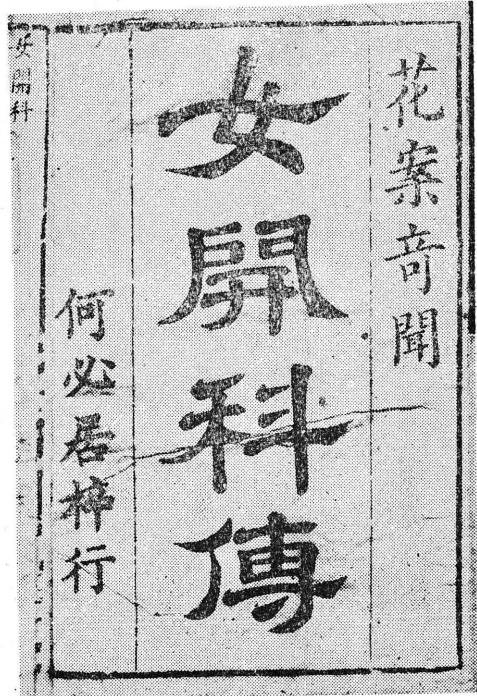 花案奇聞
女開科傳
何必居梓行
女開科